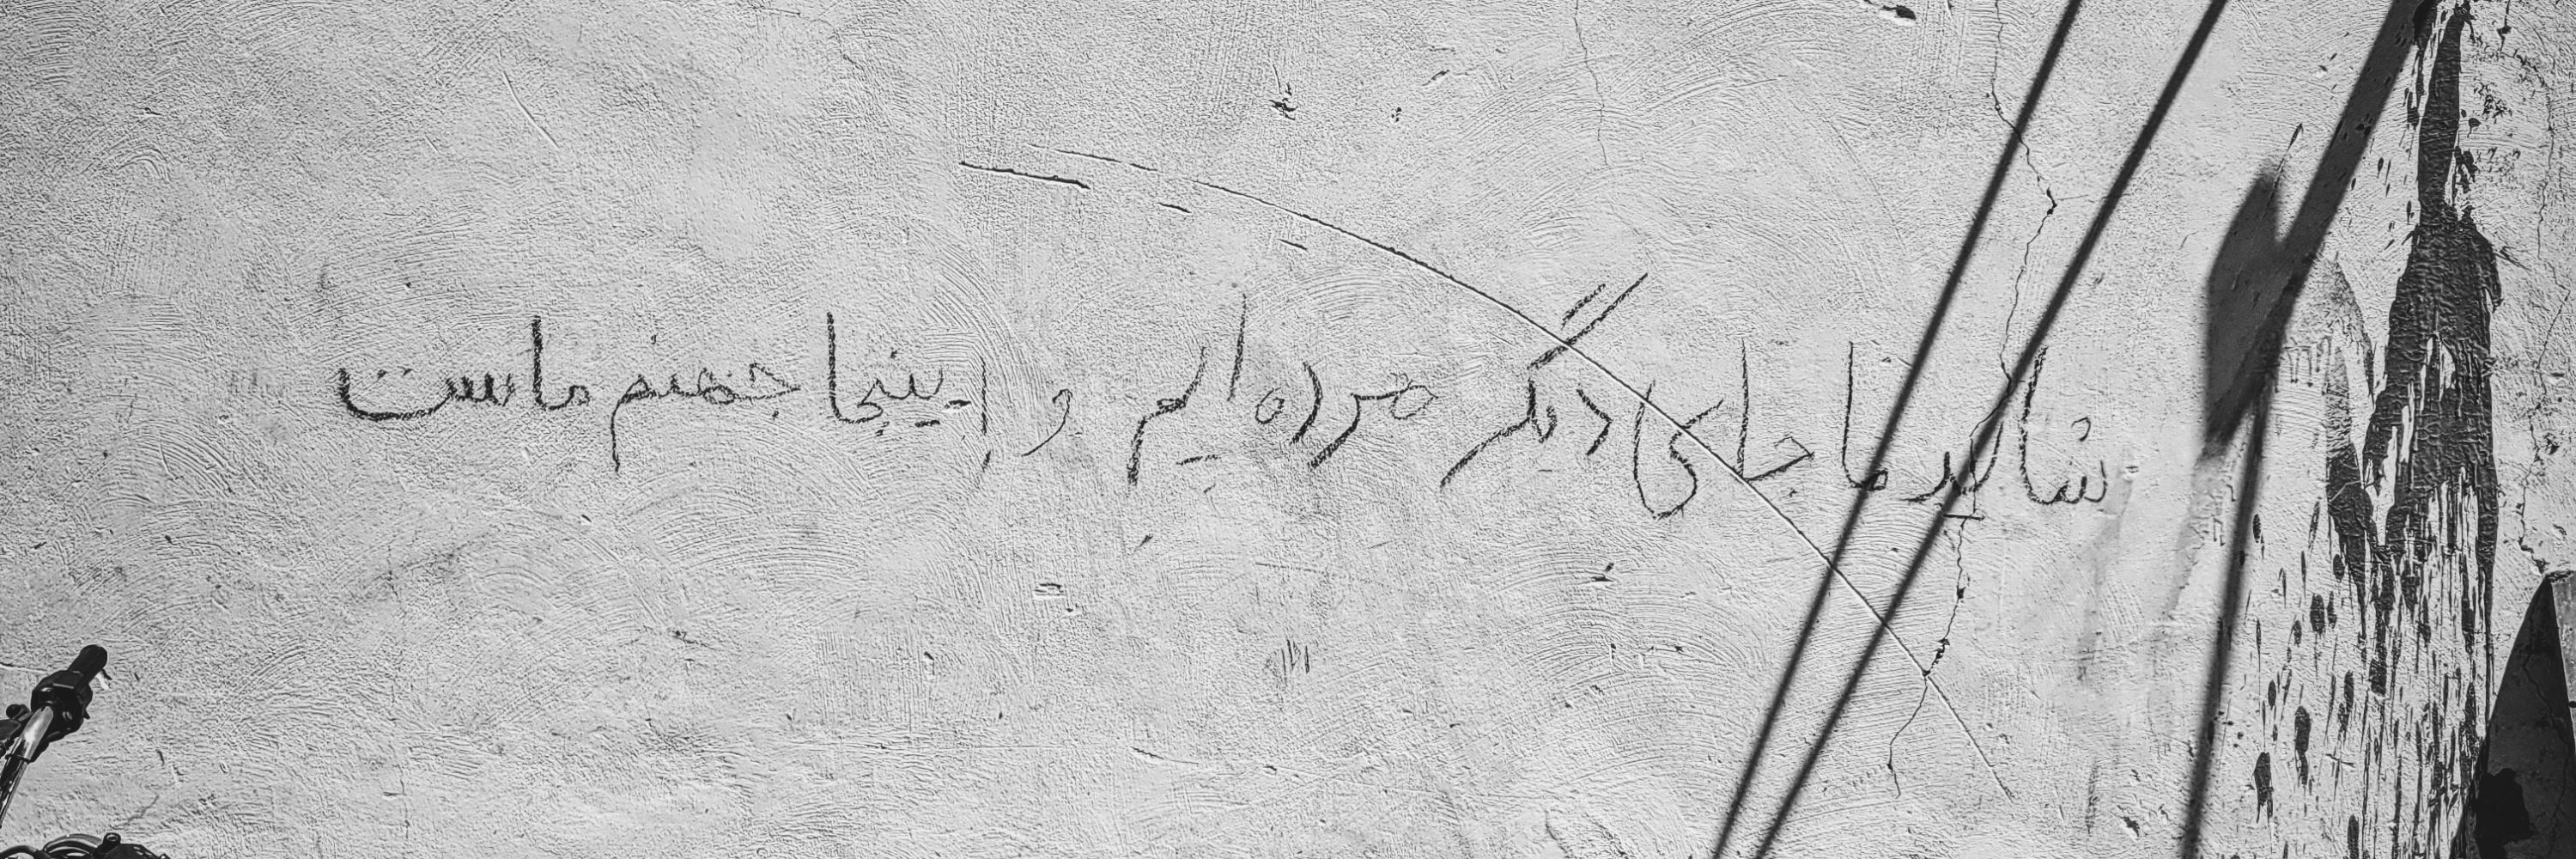 شاید ما جای دیگر مرده ایم و اینجا جهنم ماست